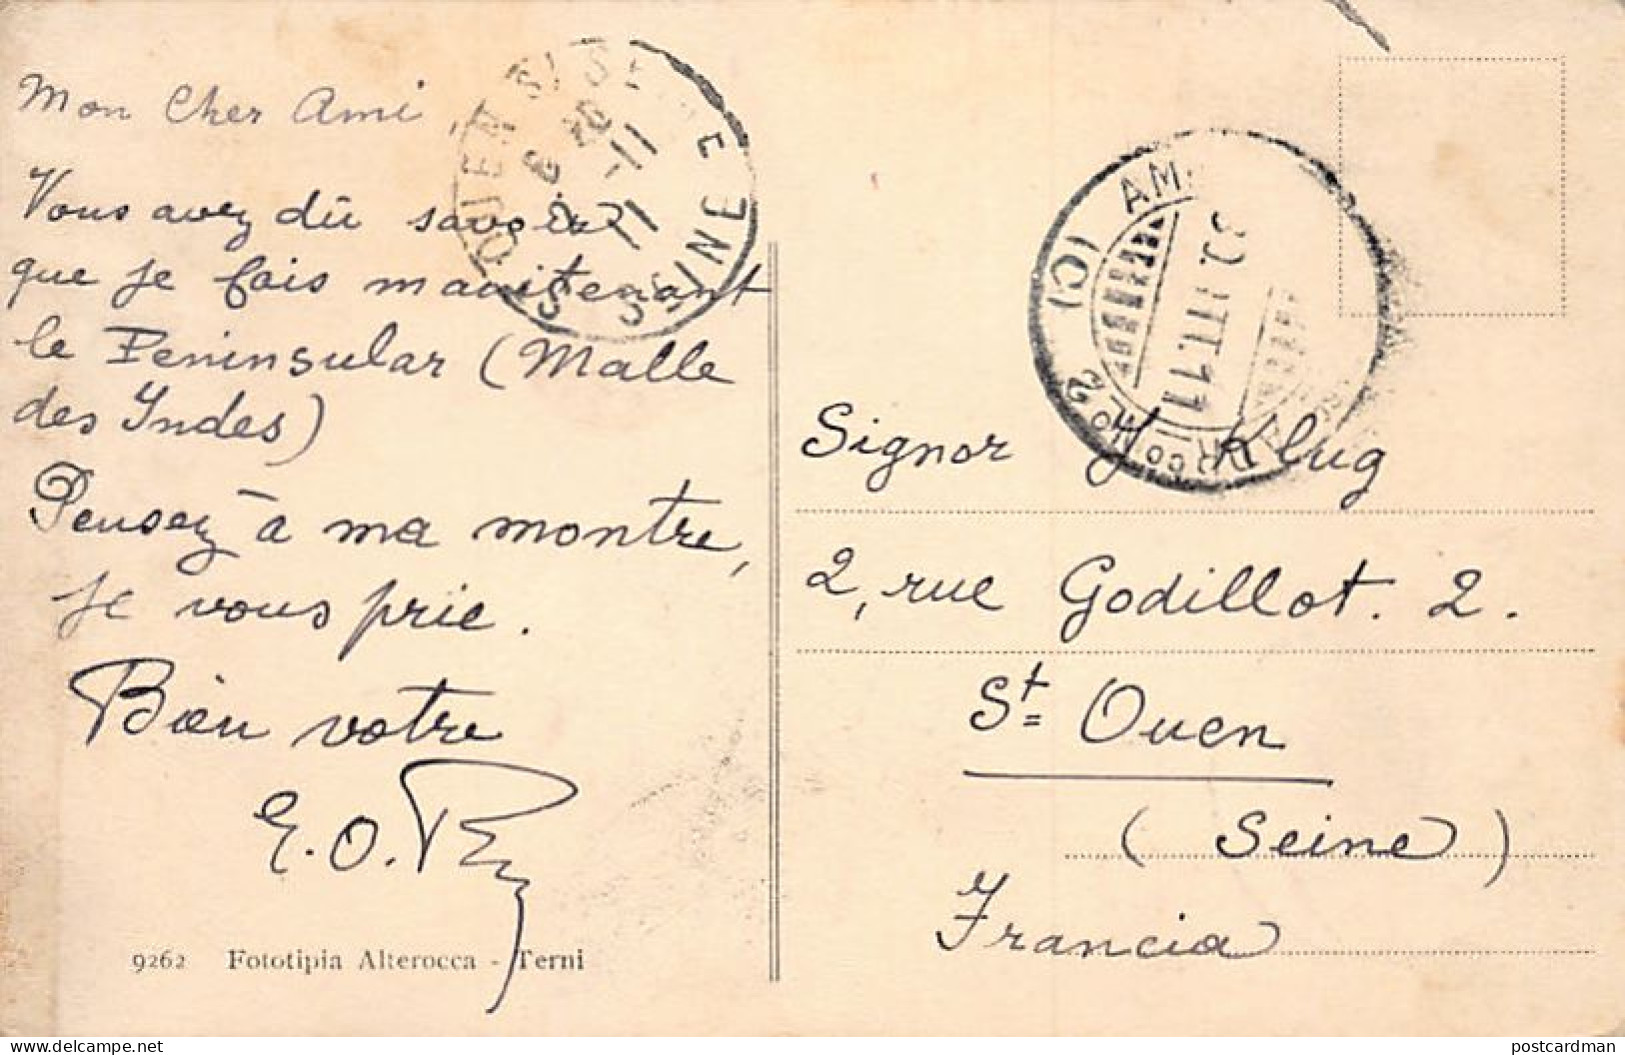 Mon Cher Ami
Vous avez dû savoir
que je fais maintenant
le Peninsular (Malle
des Indes)
Pensez à ma montre,
je vous prie.
Bien votre
E.O.
9262 Fototipia Alterocca - Terni
SEINE
11
11
AM
(C)
No 2
III.11
Signor J Klug
2, rue Godillot. 2.
St Ouen
(Seine)
Francia
postcardman